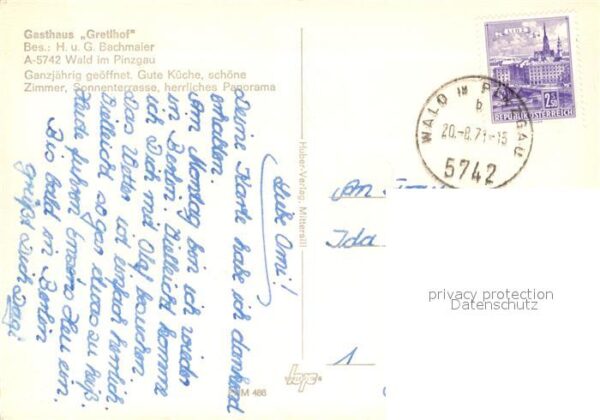 Gasthaus „Gretlhof"
Bes.: H. u. G. Bachmaier
A-5742 Wald im Pinzgau
Ganzjährig geöffnet. Gute Küche, schöne
Zimmer, Sonnenterrasse, herrliches Panorama
Liebe Omi!
Deine Karte habe ich dankend
erhalten.
Am Montag bin ich wieder
in Berlin. Vielleicht komme
ich Dich mit Olaf besuchen.
Das Wetter ist einfach herrlich
Vielleicht sogar etwas zu heiß.
Heute fuhren Bauern Heu ein.
Bis bald in Berlin
grüßt Dich
Huber-Verlag, Mittersill
M 486
LINZ
2.50
REPUBLIK ÖSTERREICH
WALD IM PINZGAU
b
20.-8.71-15
5742
An
Ida
1
privacy protection
Datenschutz